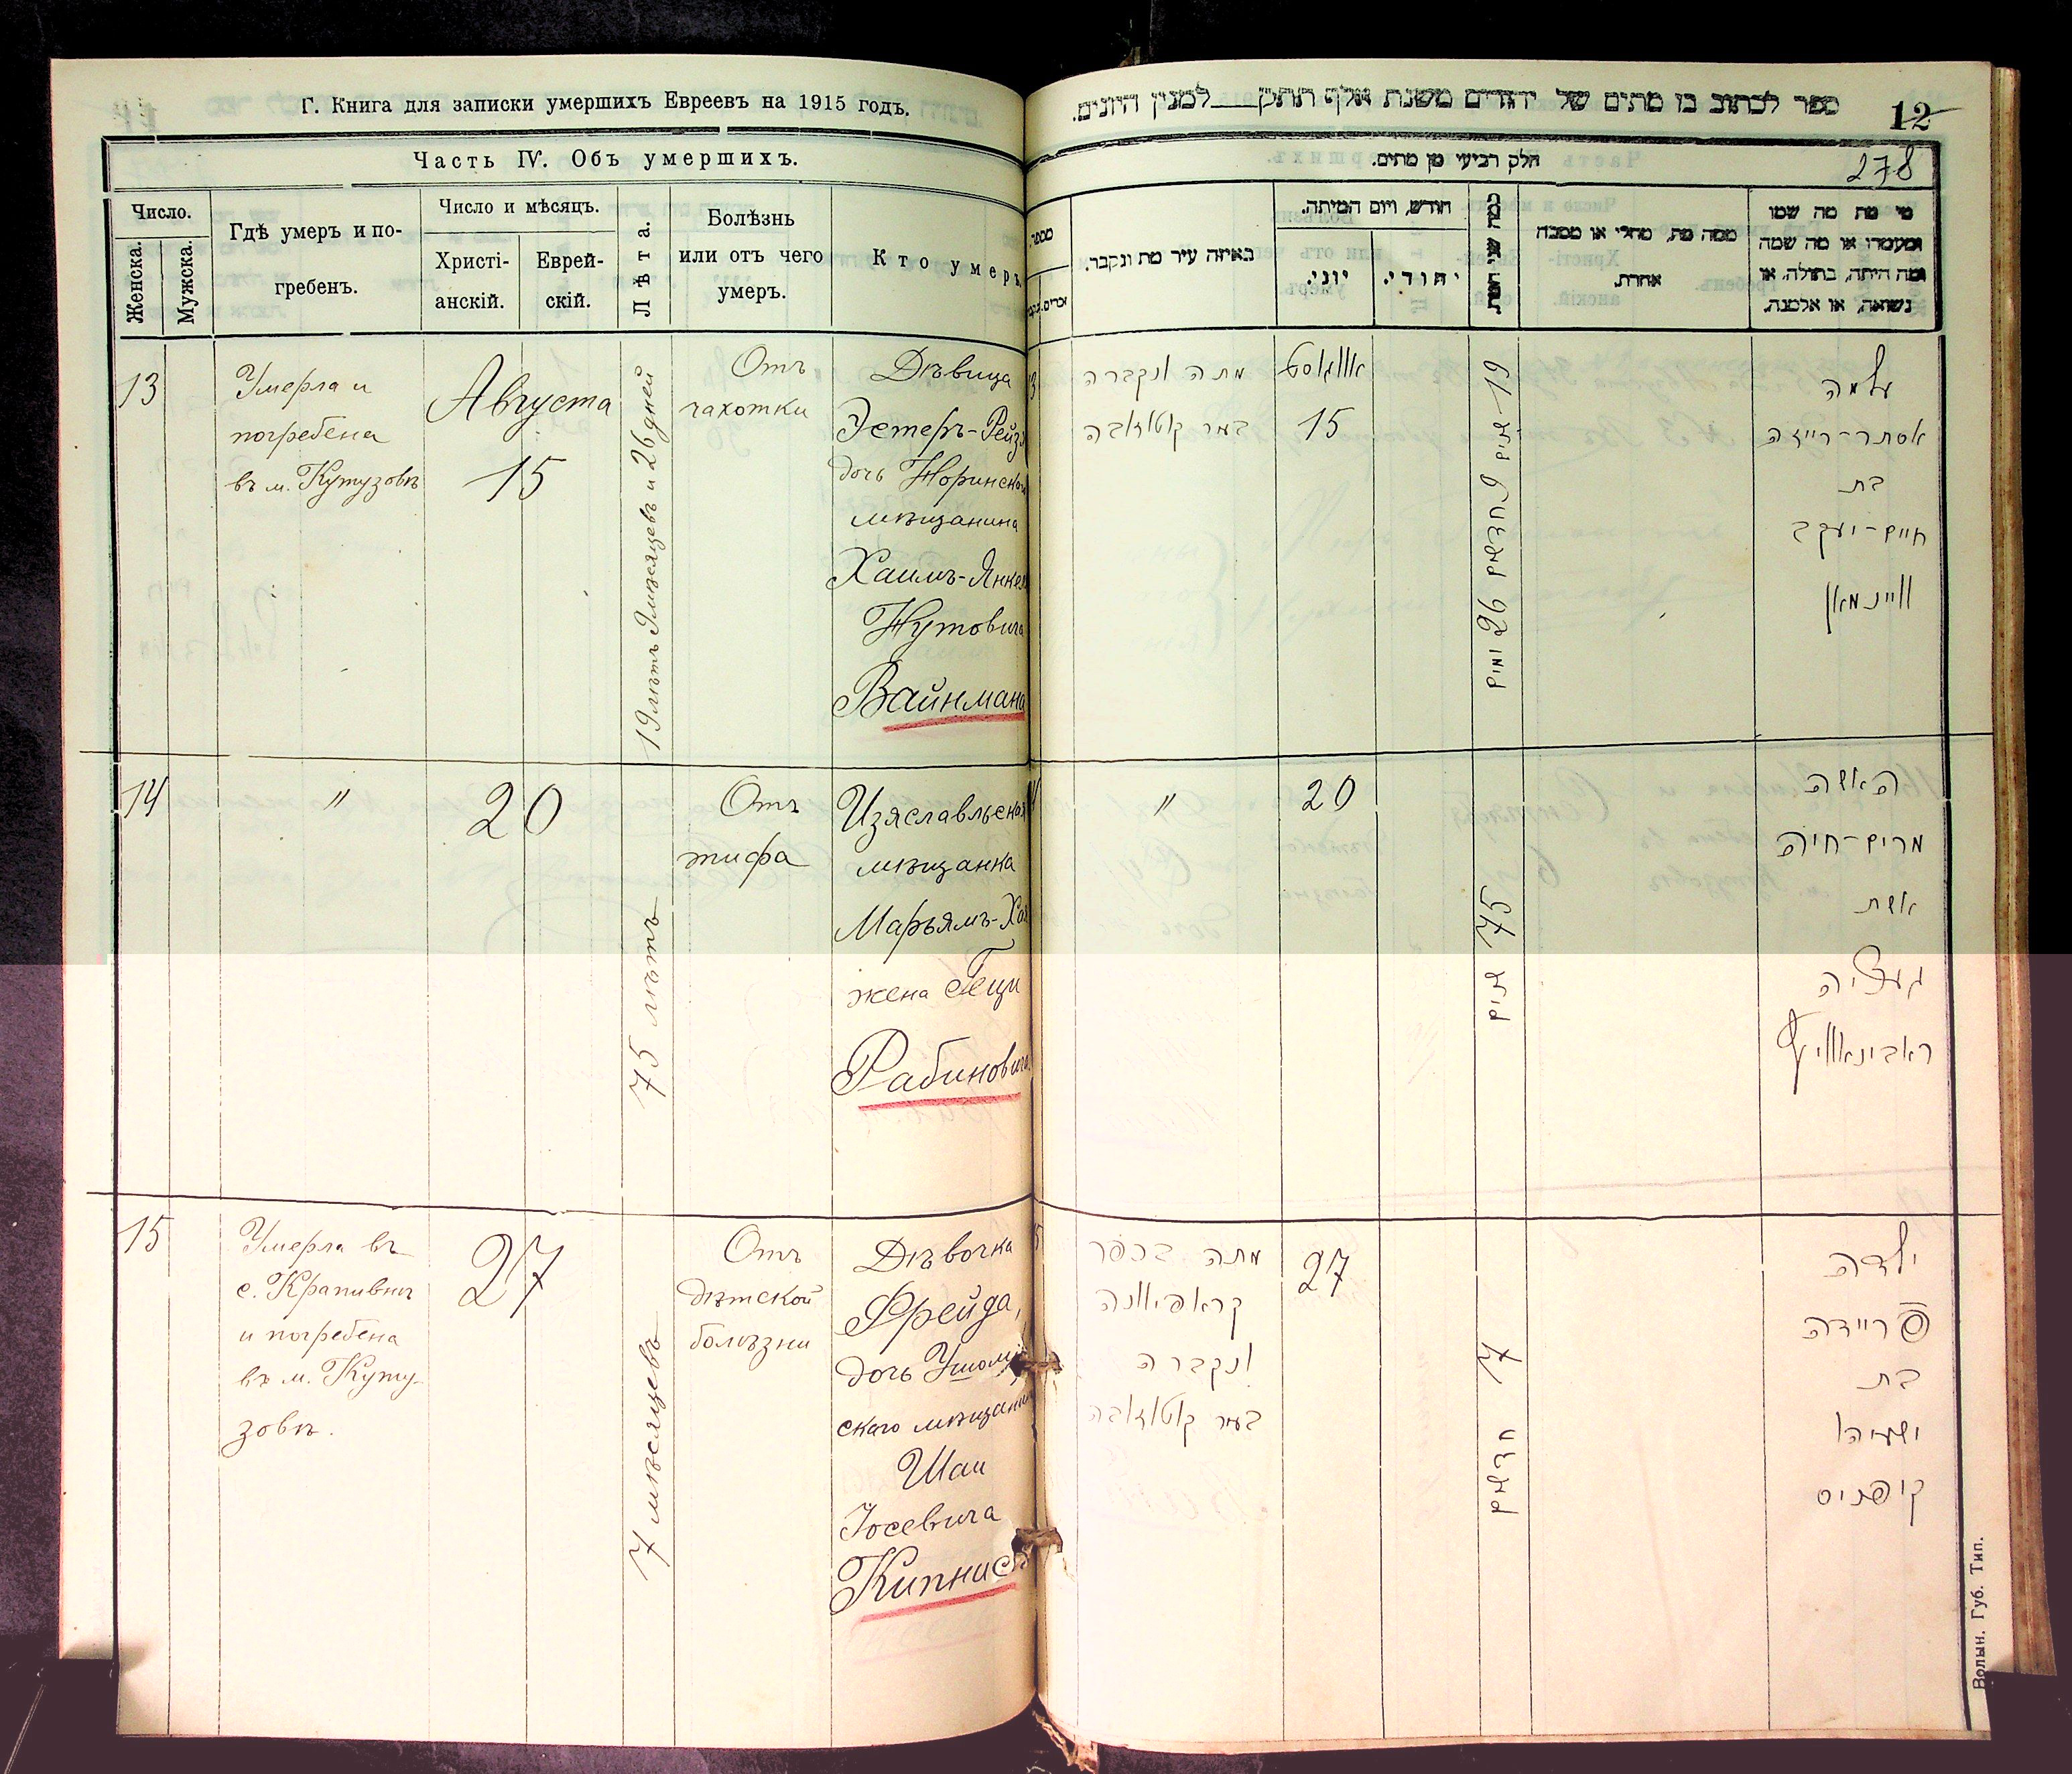 Г. Книга для записки умершихъ Евреевъ на 1915 годъ.
Часть IV. Объ умершихъ.
Число.
Женска.
Мужска.
Гдѣ умеръ и по-
гребенъ.
Число и мѣсяцъ.
Христі-
анскій.
Еврей-
скій.
Лѣта.
Болѣзнь
или отъ чего
умеръ.
Кто умеръ
13
Умерла и
погребена
въ м. Кутузовѣ
Августа
15
19 лѣтъ 9 мѣсяцевъ и 26 дней
Отъ
чахотки
Дѣвица
Эстеръ-Рейзя
дочь Норинскаго
мѣщанина
Хаимъ-Янкеля
Нутовича
Вайнмана
14
"
20
75 лѣтъ
Отъ
тифа
Изяславльская
мѣщанка
Марьямъ-Хая
жена Геци
Рабиновича
15
Умерла въ
с. Крапивнѣ
и погребена
въ м. Куту-
зовѣ.
27
7 мѣсяцевъ
Отъ
дѣтской
болѣзни
Дѣвочка
Фрейда,
дочь Ушомир
скаго мѣщанина
Шаи
Іосевича
Кипниса
ספר לכתוב בו מתים של יהודים משנת אלף תתק למנין היונים.
12
חלק רביעי מן מתים.
278
מי מת מה שמו
ומעמדו או מה שמה
ומה היתה, בתולה, או
נשואה, או אלמנה.
ממה מת, מחלי או מסבה
אחרת.
כמה שני המת
חודש, ויום המיתה.
יהודי.
יוני.
באיזה עיר מת ונקבר.
מספר
עלמה
אסתר-רייזה
בת
חיים-יעקב
וויינמאן
19 שנים 9 חדשים 26 ימים
אווגוסט
15
מתה ונקברה
בעיר קוטוזובה
האשה
מרים-חיה
אשת
געציה
ראבינאוויץ
75 שנים
20
"
ילדה
פריידה
בת
ישעיהו
קיפניס
7 חדשים
27
מתה בכפר
קראפיוונה
ונקברה
בעיר קוטוזובה
Волын. Губ. Тип.